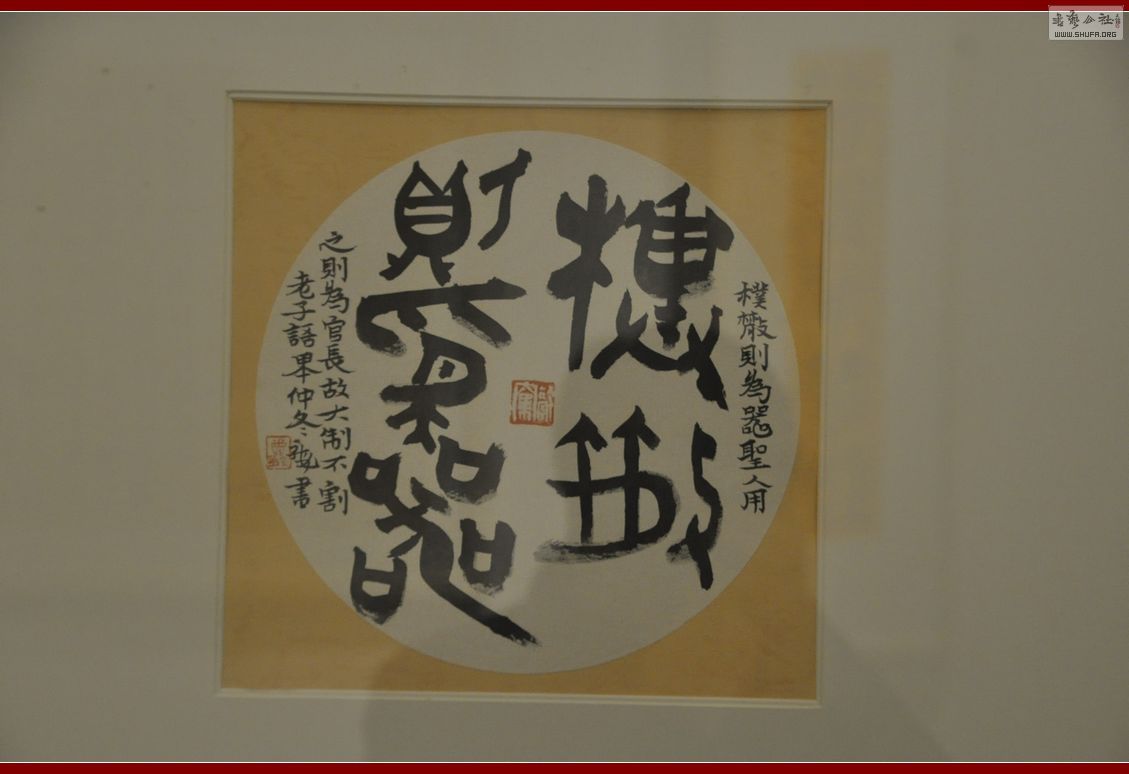 樸散
則為器
樸散則為器聖人用
之則為官長故大制不割
老子語畢仲冬
書
WWW.SHUFA.ORG